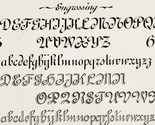 Engrossing
ABCDEFGHIJKLMNOPQ
RSTUVWXYZ
abcdefghijklmnopqrstuvwxyz
ABCDEFGHIJKLMN
OPQRSTUVWXYZ
abcdefghijklmnopqrstuvwxyz